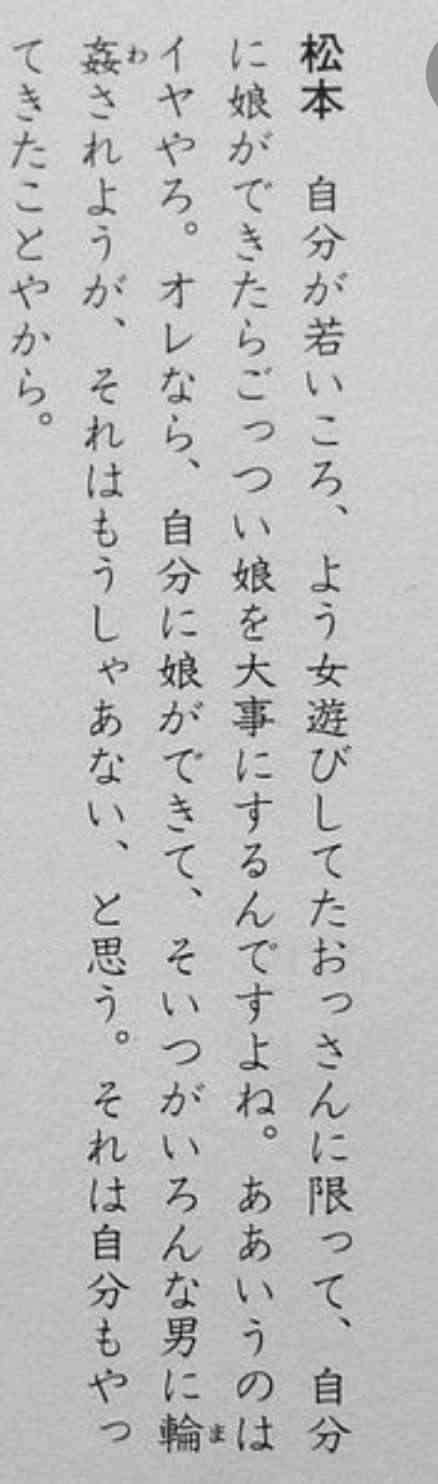 松本　自分が若いころ、よう女遊びしてたおっさんに限って、自分
に娘ができたらごっつい娘を大事にするんですよね。ああいうのは
イヤやろ。オレなら、自分に娘ができて、そいつがいろんな男に輪
姦されようが、それはもうしゃあない、と思う。それは自分もやっ
てきたことやから。
ま
わ